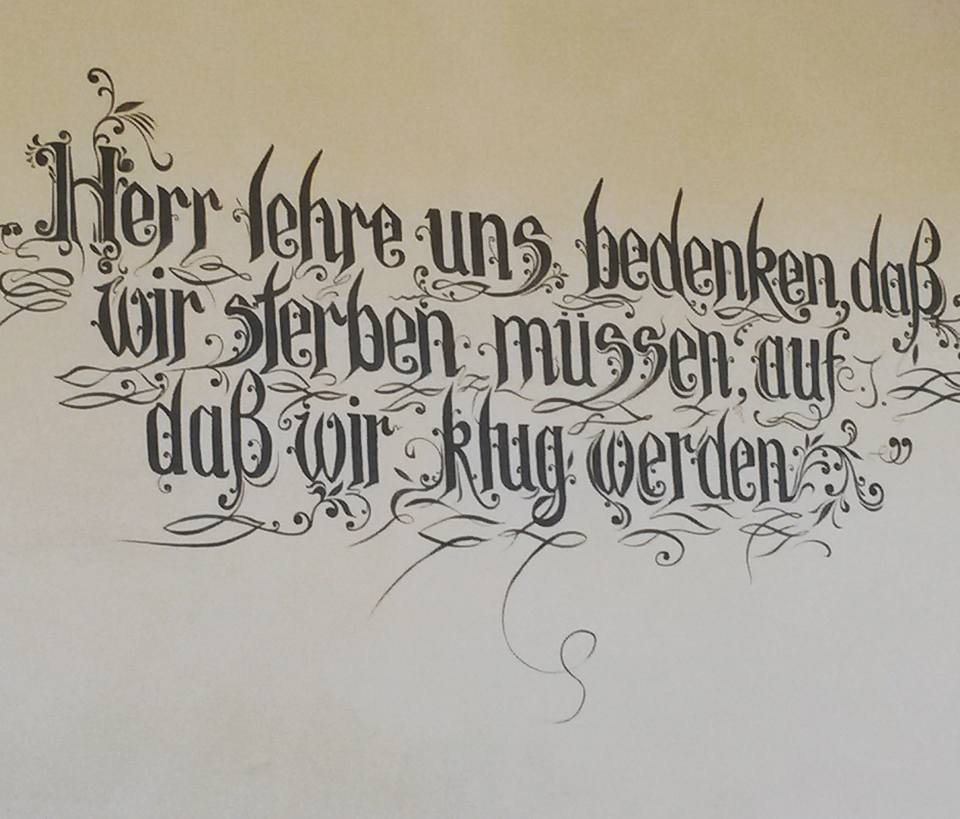 Herr lehre uns bedenken, daß
wir sterben müssen, auf
daß wir klug werden”